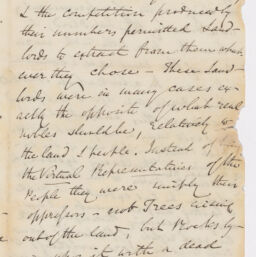 & the competition produced by
their numbers permitted Land-
lords to extract from them what-
ever they chose – These Land-
lords were in many cases ex-
actly the opposite of what real
nobles should be, relatively to
the land & people. Instead of
the Virtual Representatives of the
People they were simply their
oppressors – not Trees rising
out of the land, but Rocks
it with a dead